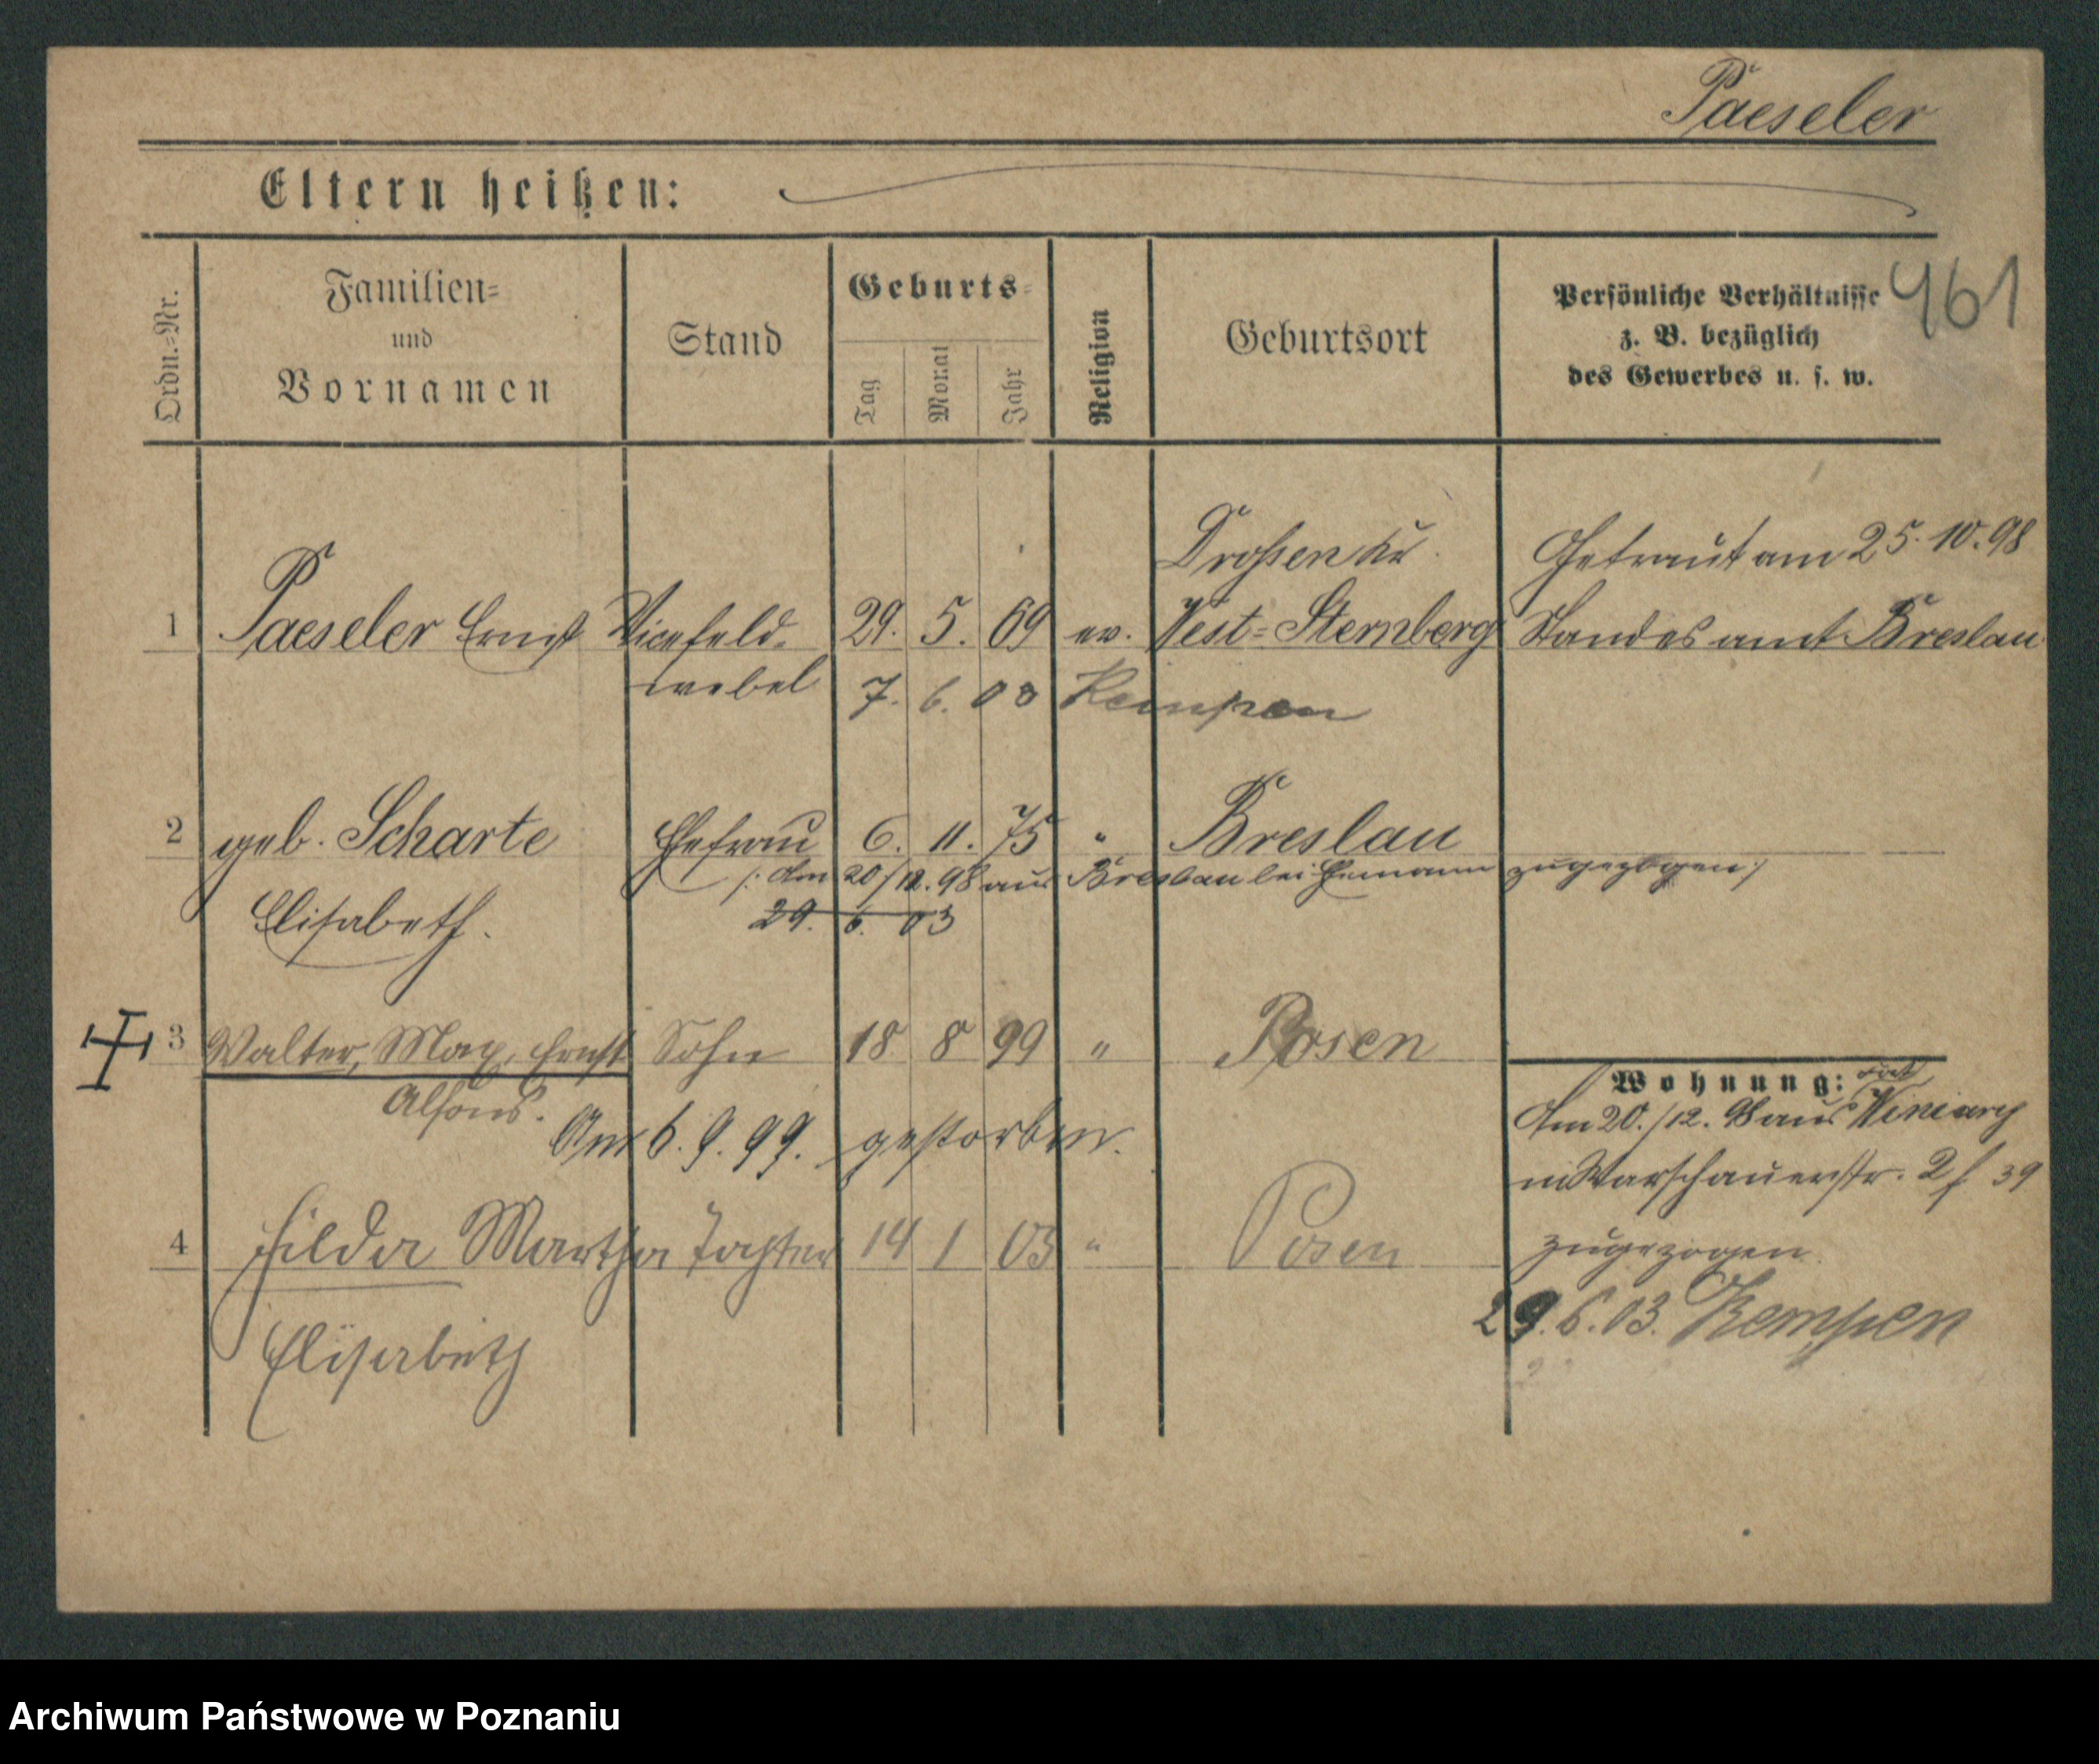 Paeseler
Eltern heißen:
461
Ordn.-Nr.
Familien-
und
Vornamen
Stand
Geburts-
Tag
Monat
Jahr
Religion
Geburtsort
Persönliche Verhältnisse
z. B. bezüglich
des Gewerbes u. s. w.
Droßen Kr. Getraut am 25. 10. 98
1 Paeseler Ernst Vicefeld- 29. 5. 69 ev. West-Sternberg Standesamt Breslau
webel 7. 6. 03 Kempen
2 geb. Scharte Ehefrau 6. 11. 75 " Breslau
/: Am 20/12. 98 aus Breslau bei Ehemann zugezogen :/
Elisabeth. 29. 6. 03
3 Walter, Max, Ernst Sohn 18 8 99 " Posen
Alfons.
Am 6. 9. 99. gestorben.
Wohnung: Fort
Am 20./12. 98 aus Winiary
Warschauerstr. 39
4 Hilda Martha Tochter 14 1 03 " Posen
zugezogen
Elisabeth
29. 6. 03. Kempen
Archiwum Państwowe w Poznaniu